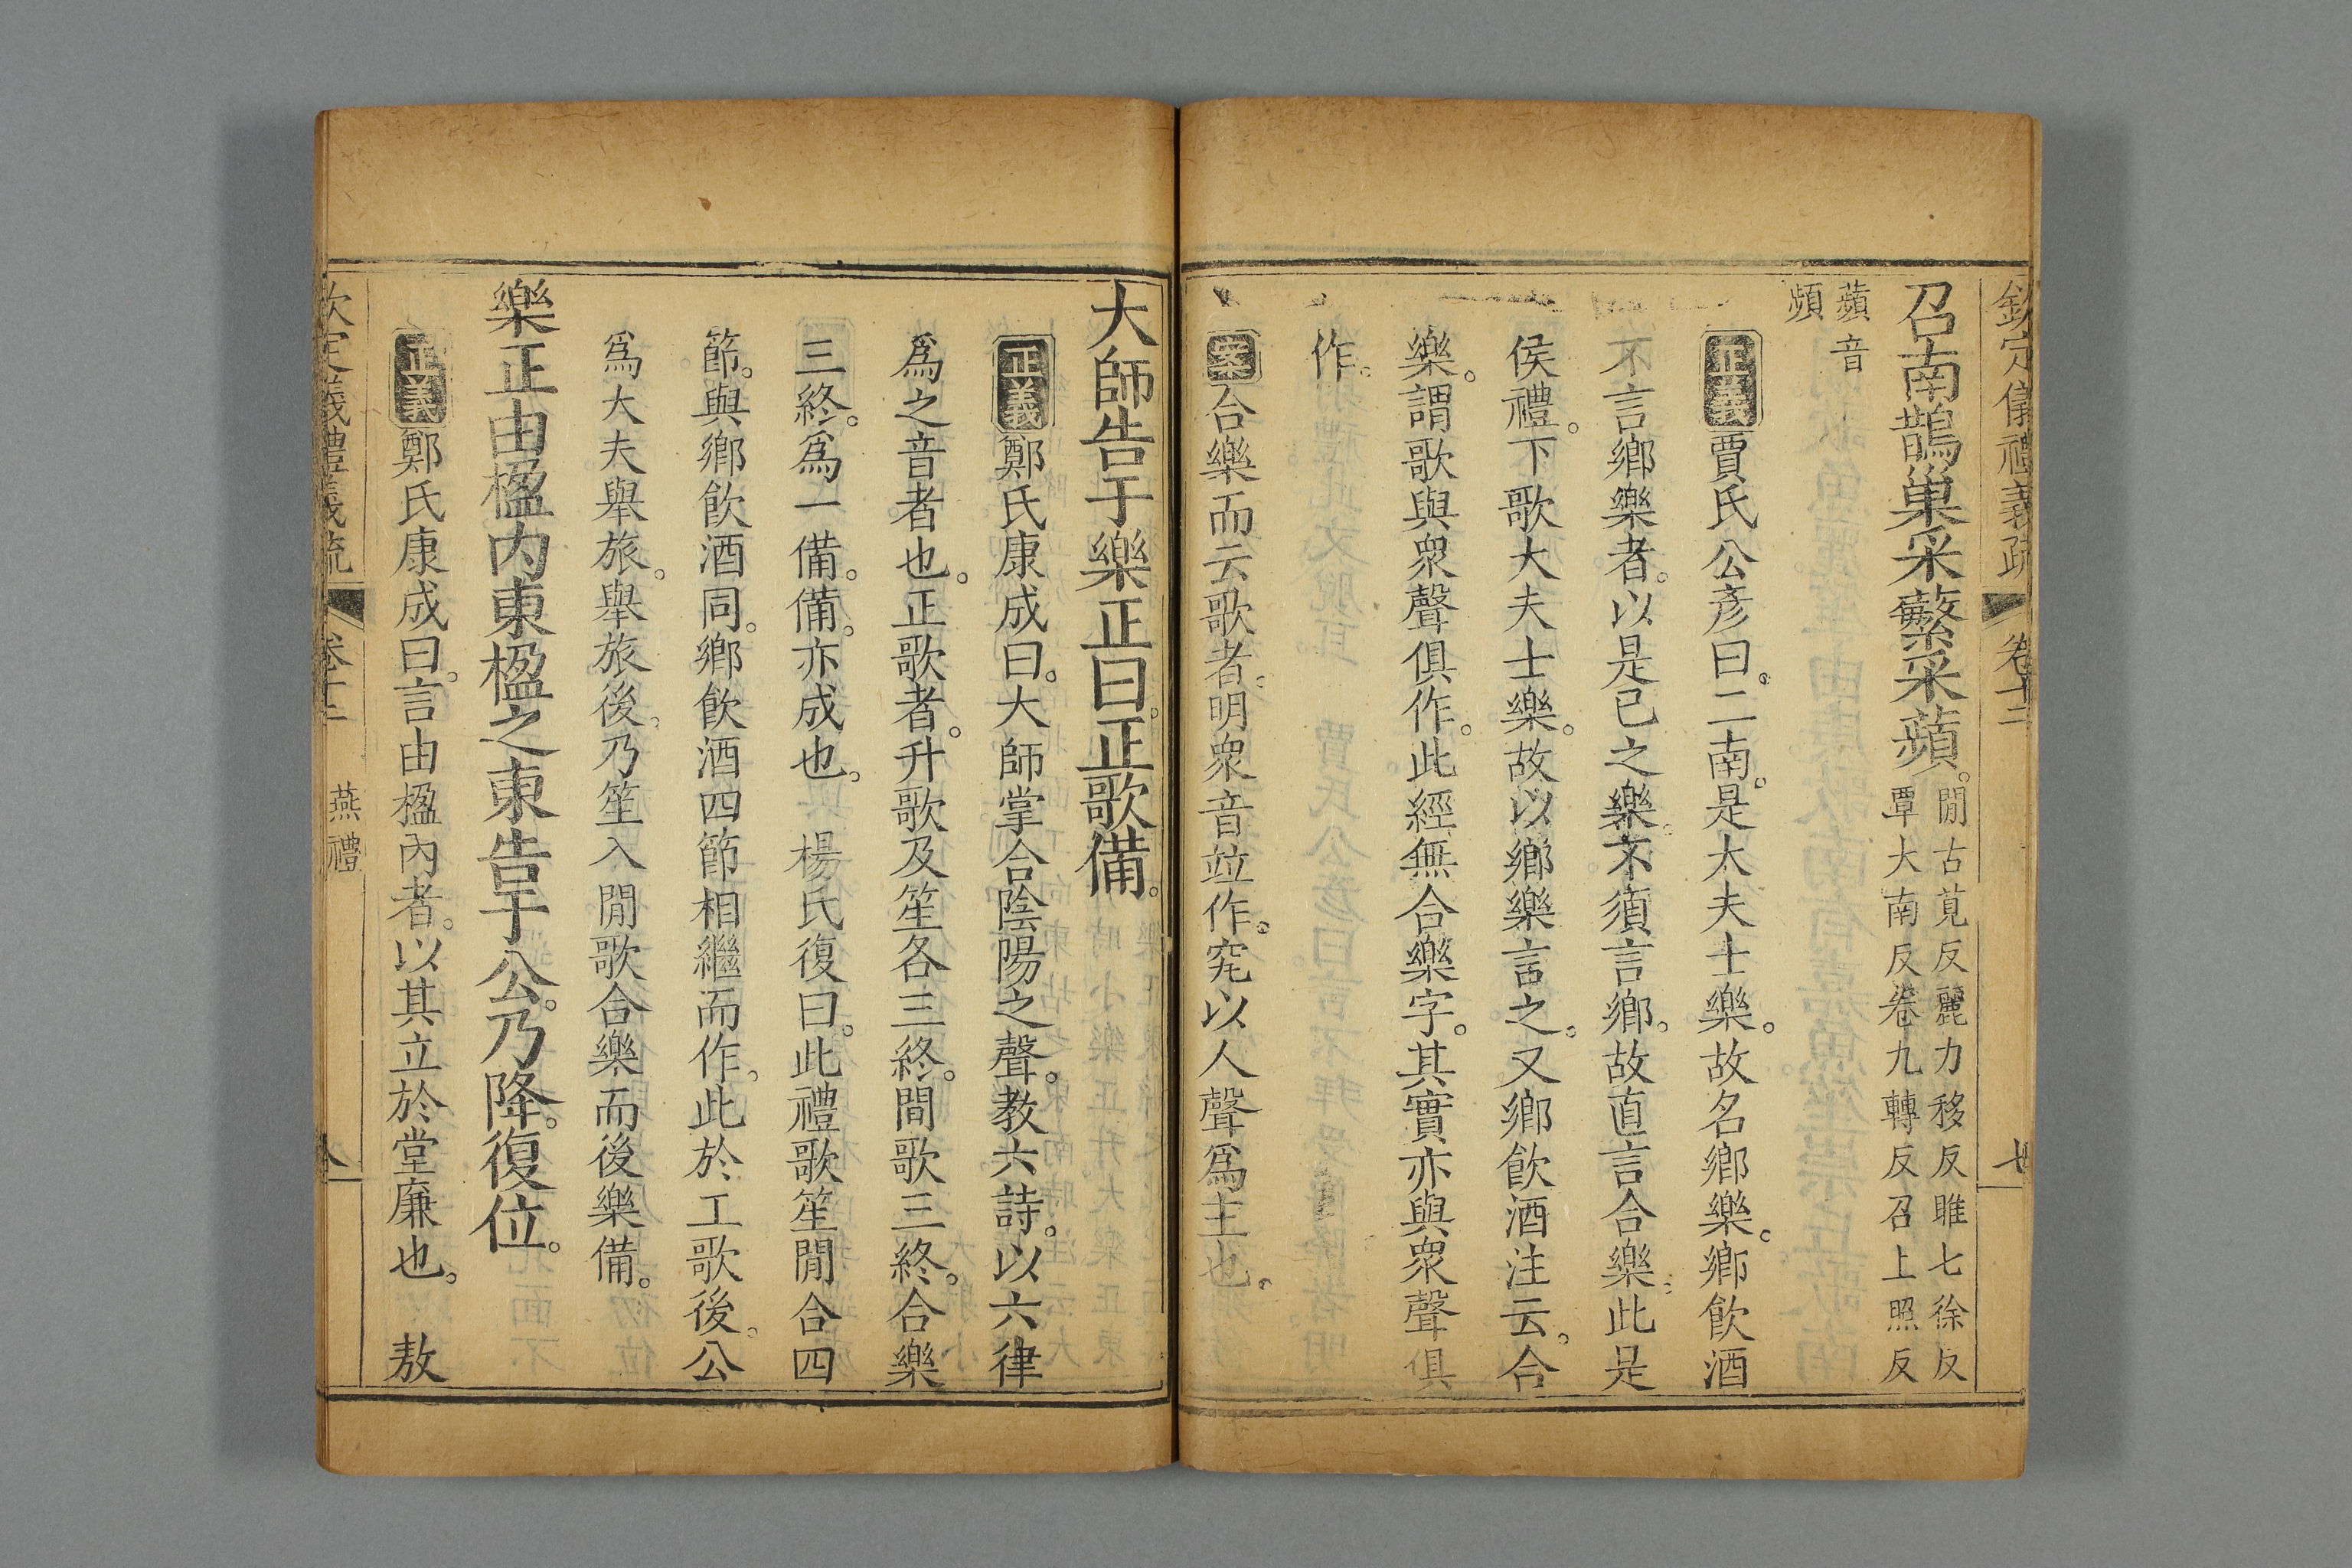 欽定儀禮義疏 卷十二
召南鵲巢采蘩采蘋。閒古莧反麗力移反雎七徐反
覃大南反卷九轉反召上照反
蘋音
頻
正義賈氏公彥曰。二南。是大夫士樂。故名鄉樂。鄉飲酒
不言鄉樂者。以是已之樂。不須言鄉。故直言合樂。此是
侯禮。下歌大夫士樂。故以鄉樂言之。又鄉飲酒注云。合
樂。謂歌與眾聲俱作。此經無合樂字。其實亦與眾聲俱
作。
案合樂而云歌者。明眾音竝作。究以人聲爲主也。
大師告于樂正曰。正歌備。
正義鄭氏康成曰。大師掌合陰陽之聲。教六詩。以六律
爲之音者也。正歌者。升歌及笙各三終。間歌三終。合樂
三終。爲一備。備。亦成也。 楊氏復曰。此禮歌笙閒合四
節。與鄉飲酒同。鄉飲酒四節相繼而作。此於工歌後。公
爲大夫舉旅。舉旅後。乃笙入閒歌合樂而後樂備。
樂正由楹內東楹之東告于公。乃降。復位。
正義鄭氏康成曰。言由楹內者。以其立於堂廉也。 敖
欽定儀禮義疏 卷十二 燕禮